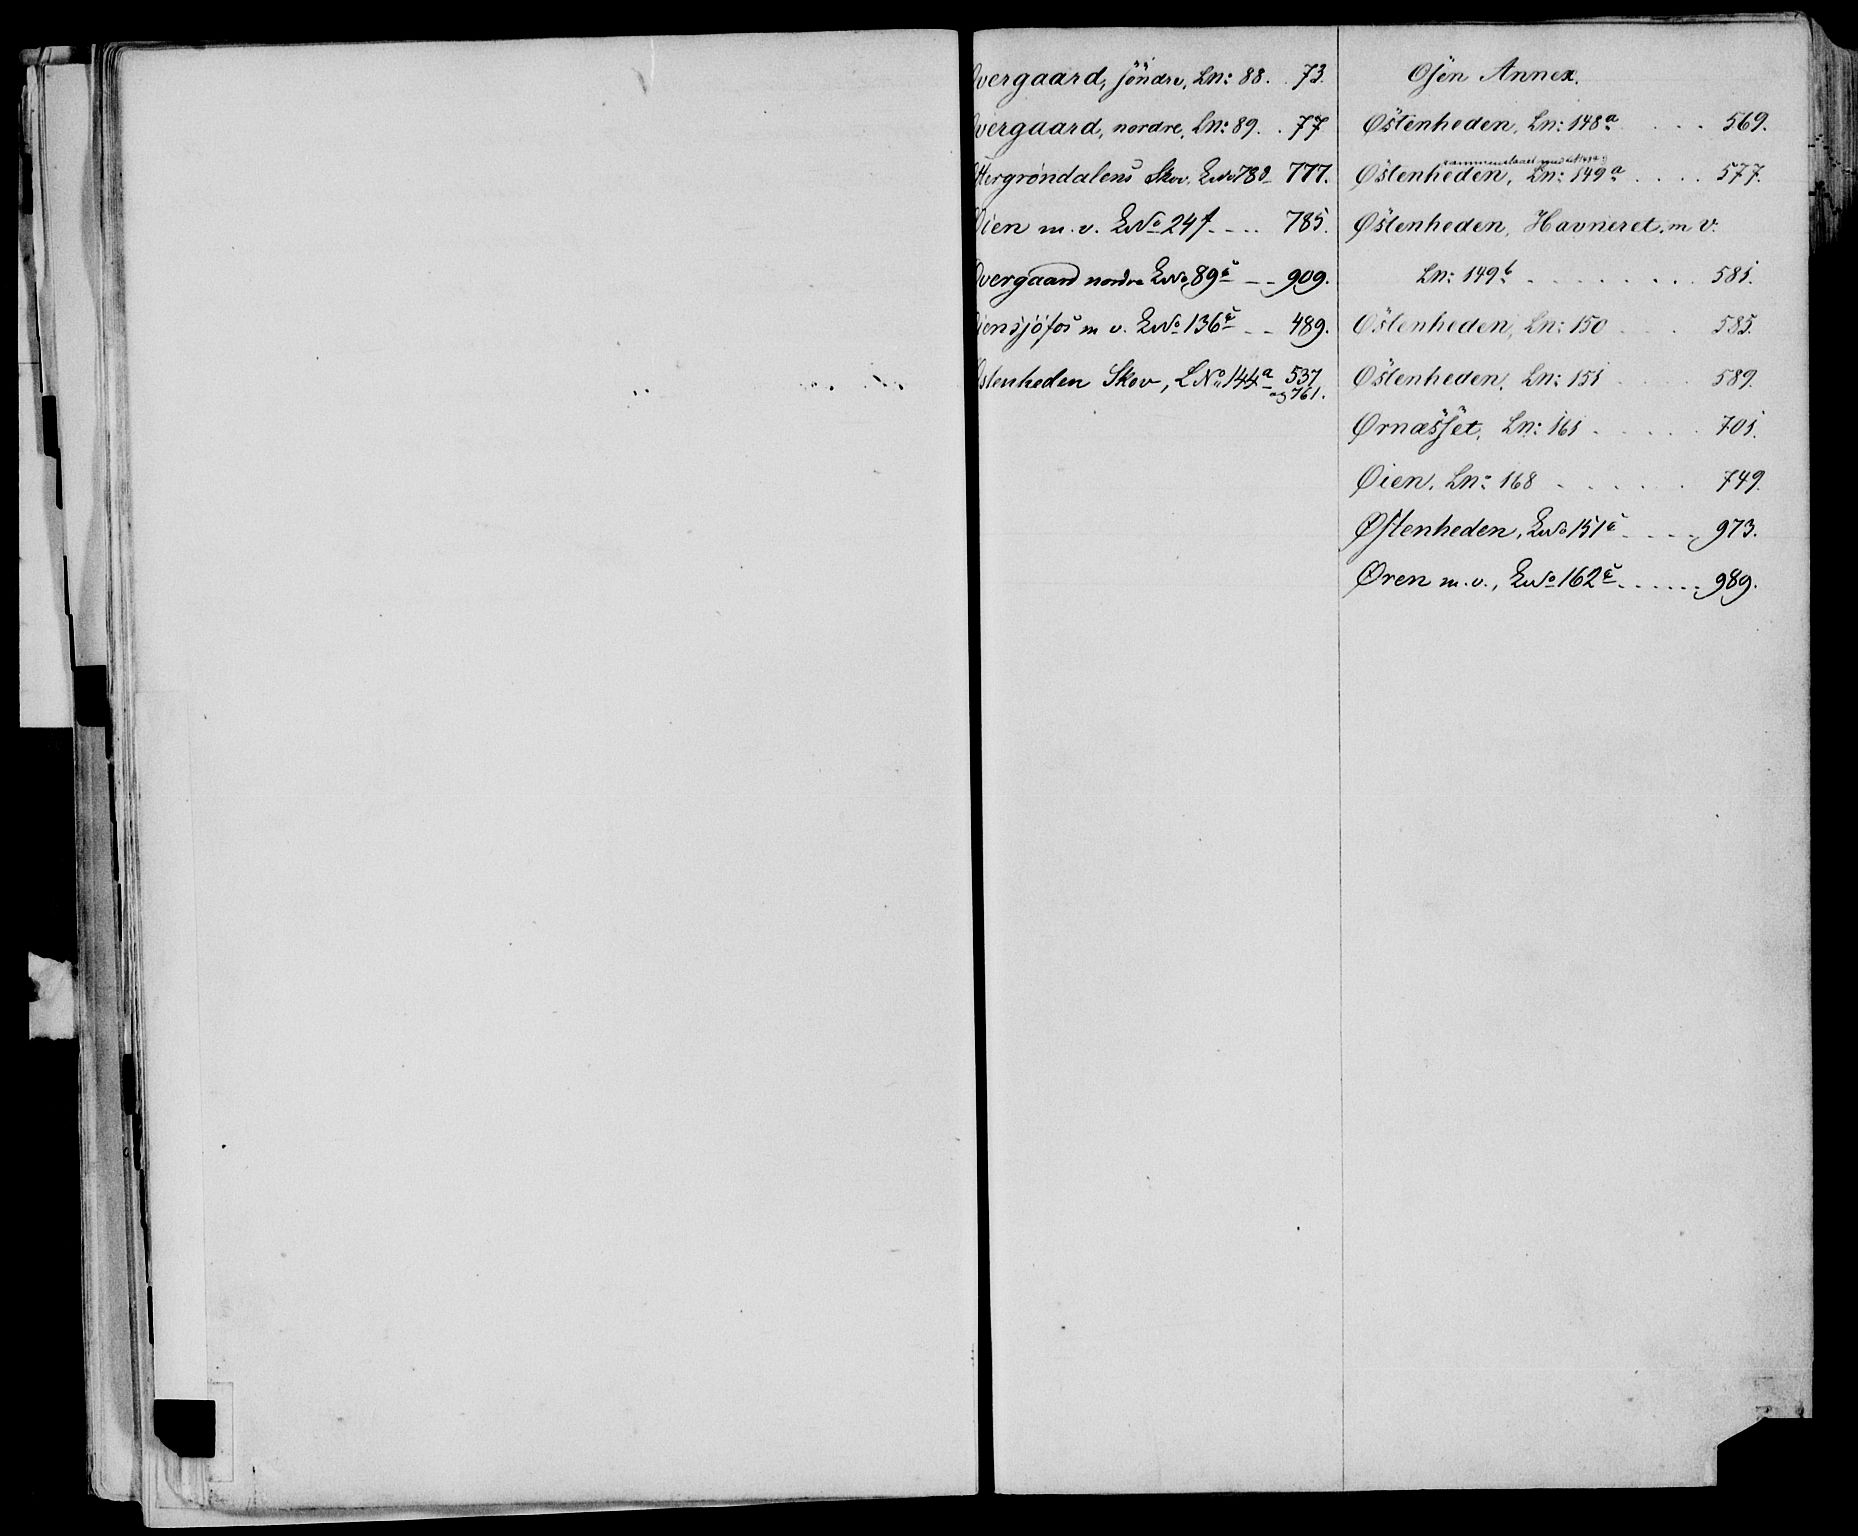 Øvergaard, söndre, Ln: 88. . 73.
Øvergaard, nordre, Ln: 89. . 77
Øttergrøndalens Skov. LNo 78 777.
Øien m. v. LNo 24 f. - . . 785.
Øvergaard nordre LNo 89 c - - 909.
Øiensjöfos m v. LNo 136 c - - 489.
Østenheden Skov, LNo 144 a 537
og 761.
Osen Annex.
Østenheden, Ln: 148 a. . . . 569.
sammenslaaet med
Østenheden, Ln: 149 a . . . . 577.
Østenheden, Havneret. m v.
Ln: 149 b . . . . . . . . 581.
Østenheden, Ln: 150 . . . . 585.
Østenheden, Ln: 151 . . . . 589.
Ørnæsset, Ln: 161 . . . . . 701.
Øien. Ln: 168 . . . . . . 749.
Østenheden, LNo 151 c . . . . 973.
Øren m. v., LNo 162 c . . . . . . 989.